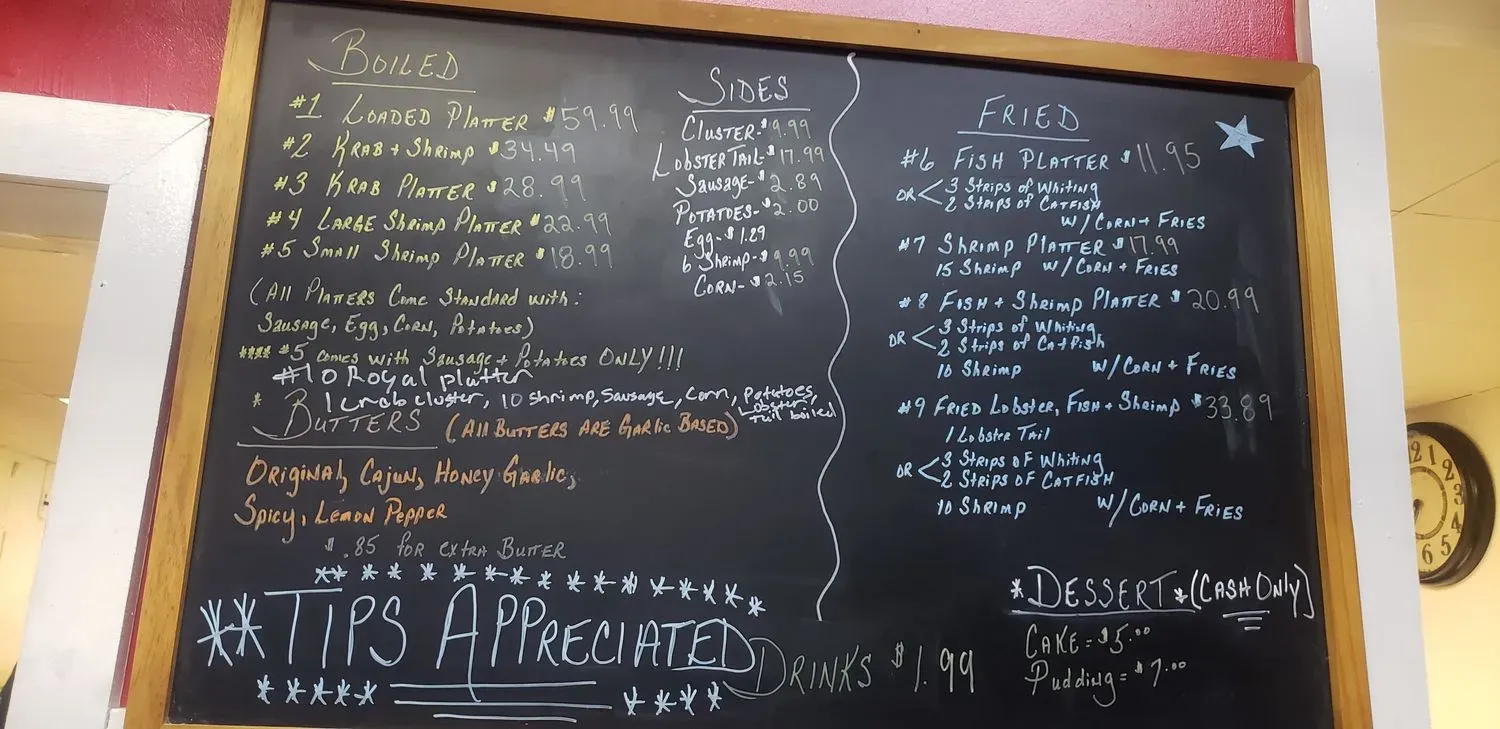 BOILED
#1 LOADED PLATTER $59.99
#2 KRAB + SHRIMP $34.49
#3 KRAB PLATTER $28.99
#4 LARGE SHRIMP PLATTER $22.99
#5 SMALL SHRIMP PLATTER $18.99
(ALL PLATTERS COME STANDARD WITH:
SAUSAGE, EGG, CORN, POTATOES)
**** #5 COMES WITH SAUSAGE + POTATOES ONLY!!!
#10 Royal platter
* 1 crab cluster, 10 shrimp, sausage, corn, potatoes,
Lobster
tail boiled
BUTTERS (ALL BUTTERS ARE GARLIC BASED)
ORIGINAL, CAJUN, HONEY GARLIC,
SPICY, LEMON PEPPER
$.85 FOR EXTRA BUTTER
** TIPS APPRECIATED
SIDES
CLUSTER- $9.99
LOBSTER TAIL- $17.99
SAUSAGE- $2.89
POTATOES- $2.00
EGG- $1.29
6 SHRIMP- $9.99
CORN- $2.15
FRIED
#6 FISH PLATTER $11.95
OR < 3 STRIPS OF WHITING
2 STRIPS OF CATFISH
W/ CORN + FRIES
#7 SHRIMP PLATTER $17.99
15 SHRIMP W/ CORN + FRIES
#8 FISH + SHRIMP PLATTER $20.99
OR < 3 STRIPS OF WHITING
2 STRIPS OF CATFISH
10 SHRIMP W/ CORN + FRIES
#9 FRIED LOBSTER, FISH + SHRIMP $33.89
1 LOBSTER TAIL
OR < 3 STRIPS OF WHITING
2 STRIPS OF CATFISH
10 SHRIMP W/ CORN + FRIES
*DESSERT* (CASH ONLY)
CAKE = $5.00
PUDDING = $7.00
DRINKS $1.99
12
1
2
3
4
5
6